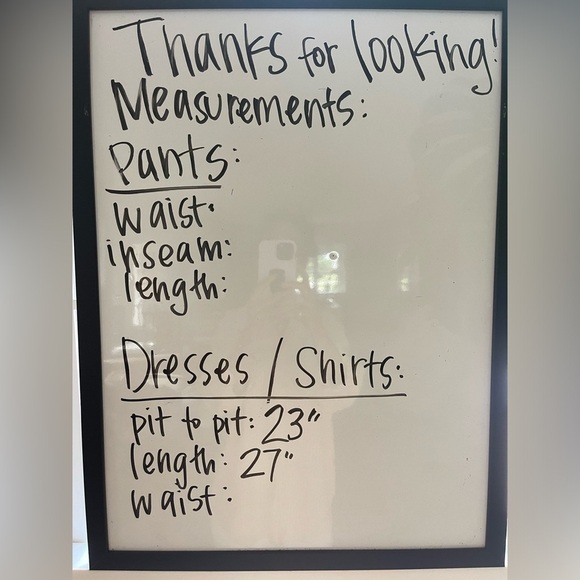 Thanks for looking!
Measurements:
Pants:
waist:
inseam:
length:
Dresses / Shirts:
pit to pit: 23"
length: 27"
waist: